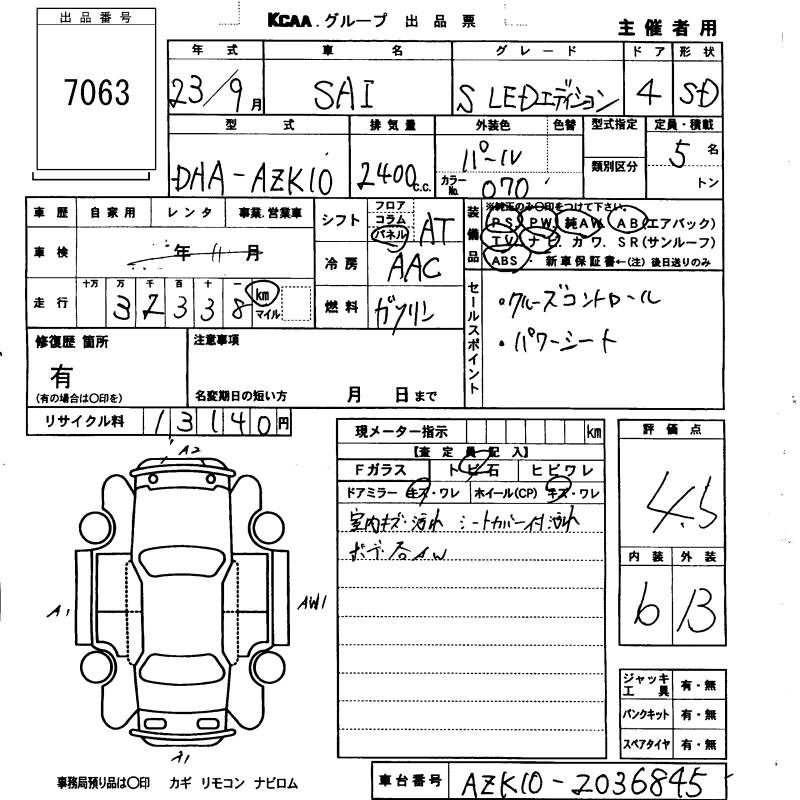 出品番号
7063
KCAA.グループ 出品票
主催者用
年式 車名 グレード ドア 形状
23/9月 SAI S LEDエディション 4 SD
型式 排気量 外装色 色替 型式指定 定員・積載
DAA-AZK10 2400c.c. パール 類別区分 5名
カラーNo. 070 トン
車歴 自家用 レンタ 事業.営業車
車検 年 11月
走行 十万 万 千 百 十 一
3 2 3 3 8 km マイル
シフト フロア コラム パネル AT
冷房 AAC
燃料 ガソリン
装備品
※純正のみ〇印をつけて下さい。
PS. PW. 純AW. AB(エアバック)
TV. ナビ. カワ. SR(サンルーフ)
ABS ・ 新車保証書←(注)後日送りのみ
セールスポイント
・クルーズコントロール
・パワーシート
修復歴 箇所
有
(有の場合は〇印を)
注意事項
名変期日の短い方 月 日まで
リサイクル料 13140円
現メーター指示 km
【査定員記入】
Fガラス トビ石 ヒビワレ
ドアミラー キズ・ワレ ホイール(CP) キズ・ワレ
室内キズ・汚れ シートカバー付 汚れ
評価点
4.5
内装 外装
6 B
A2
A1
AW1
A1
ジャッキ工具 有・無
パンクキット 有・無
スペアタイヤ 有・無
事務局預り品は〇印 カギ リモコン ナビロム
車台番号 AZK10-2036845